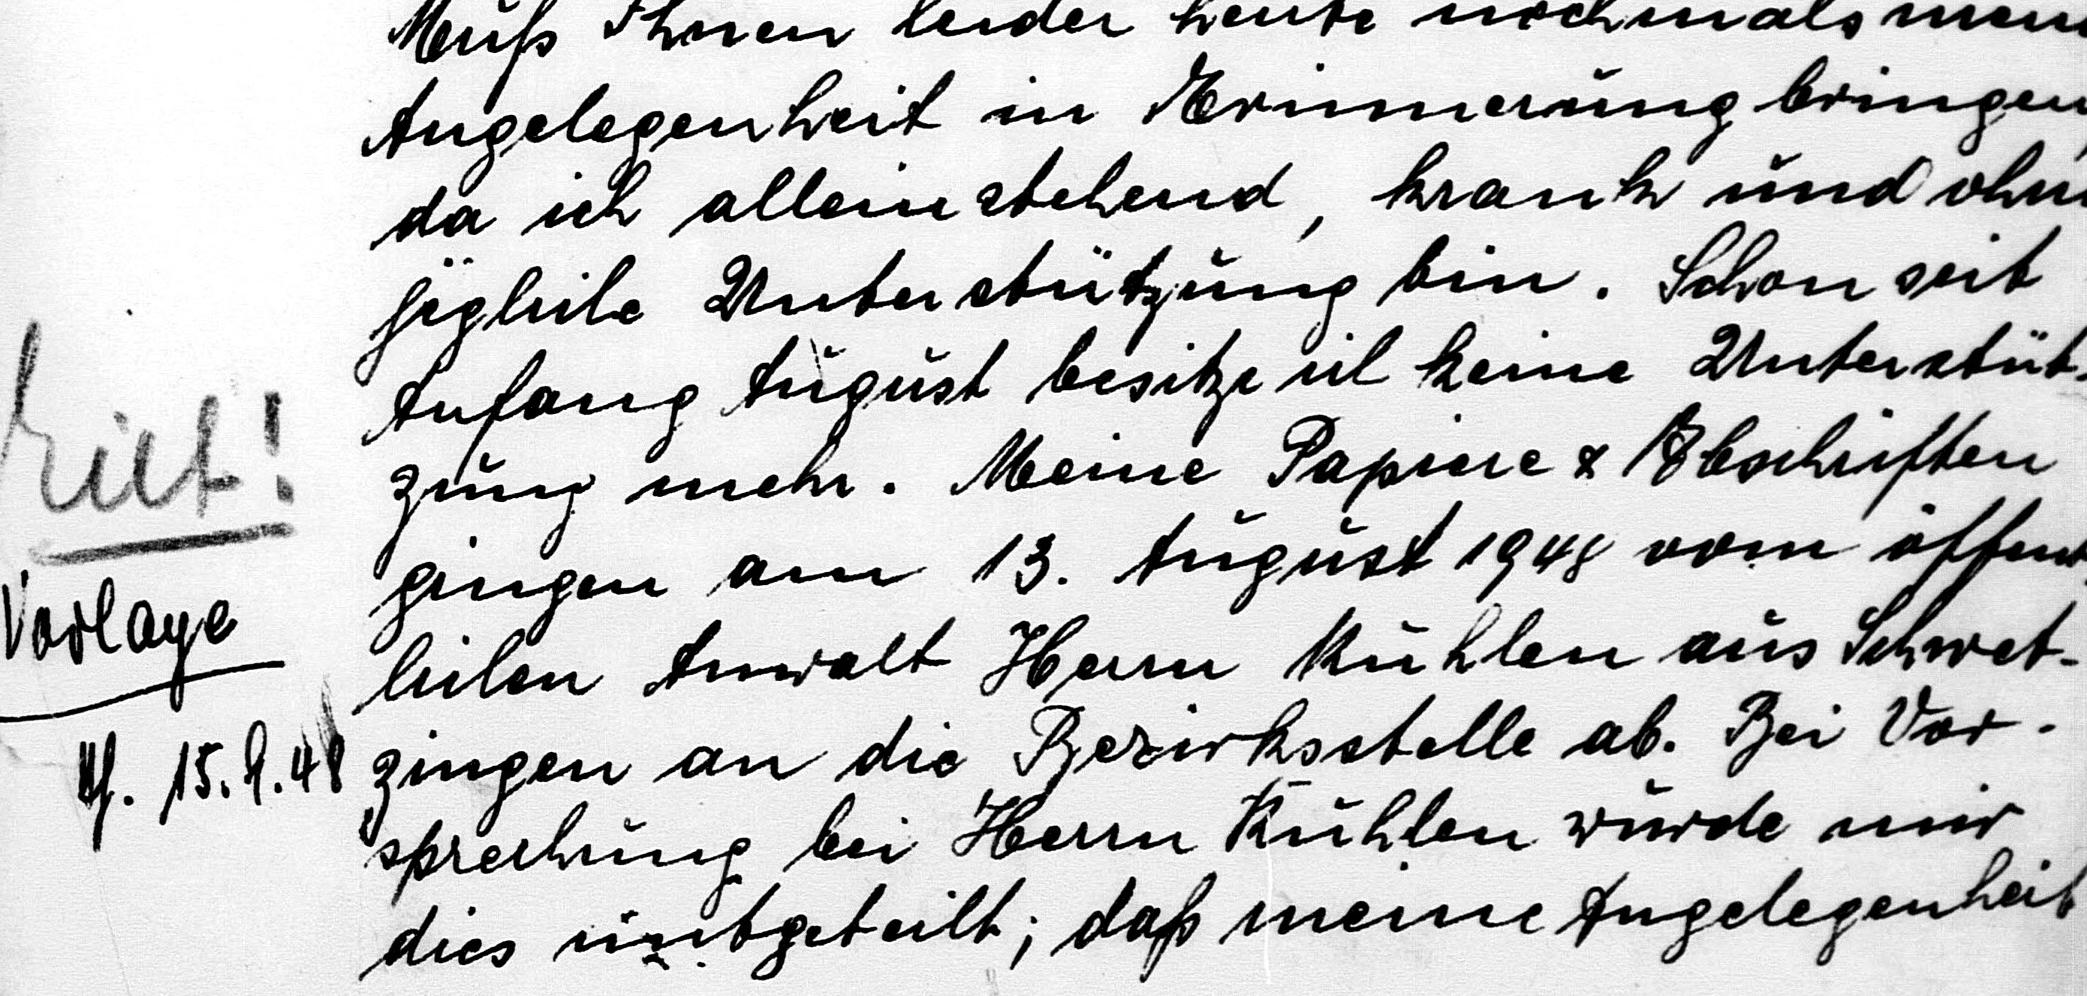 Muß Ihnen leider heute nochmals mein
Angelegenheit in Erinnerung bringen,
da ich alleinstehend, krank und ohne
jegliche Unterstützung bin. Schon seit
Anfang August besitze ich keine Unterstüt-
zung mehr. Meine Papiere & Abschriften
gingen am 13. August 1948 vom öffent-
lichen Anwalt Herrn Kühlen aus Schwet-
zingen an die Bezirksstelle ab. Bei Vor-
sprechung bei Herrn Kühlen wurde mir
dies mitgeteilt; daß meine Angelegenheit
Eilt!
Vorlage
15.9.48